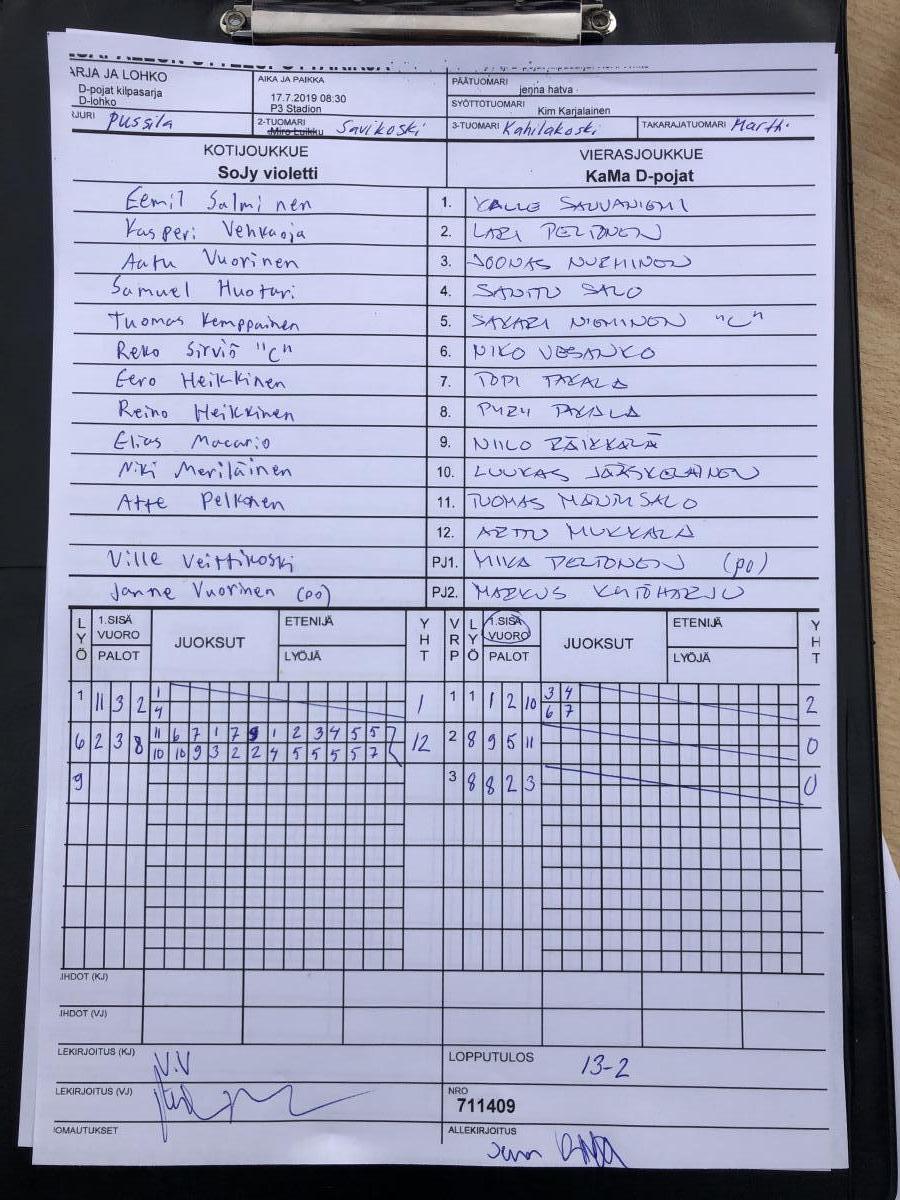 ARJA JA LOHKO
D-pojat kilpasarja
D-lohko
AIKA JA PAIKKA
17.7.2019 08:30
P3 Stadion
PÄÄTUOMARI
jenna hatva
SYÖTTÖTUOMARI
Kim Karjalainen
RJURI Pussila
2-TUOMARI Savikoski
Miro Luikku
3-TUOMARI Kahilakoski
TAKARAJATUOMARI Martti
KOTIJOUKKUE
SoJy violetti
VIERASJOUKKUE
KaMa D-pojat
Eemil Salminen 1. KALLE SAUVANIEMI
Kasperi Vehkaoja 2. LARI PELTONEN
Aatu Vuorinen 3. JOONAS NURMINEN
Samuel Huotari 4. SANTTU SALO
Tuomas Kemppainen 5. SAKARI NIEMINEN "C"
Reko Sirviö "C" 6. NIKO VESANKO
Eero Heikkinen 7. TOPI TAKALA
Reino Heikkinen 8. PYRY TAKALA
Elias Macario 9. NIILO RÄIKKÄLÄ
Niki Meriläinen 10. LUUKAS JÄÄSKELÄINEN
Atte Pelkonen 11. TUOMAS
12. ARTTU MUKKALA
Ville Veittikoski PJ1. MIKA PELTONEN (po)
Janne Vuorinen (po) PJ2. MARKUS
LYÖ 1.SISÄ VUORO PALOT JUOKSUT ETENIJÄ LYÖJÄ YHT VRP LYÖ 1.SISÄ VUORO PALOT JUOKSUT ETENIJÄ LYÖJÄ YHT
1 11 3 2 1 1 1 1 1 2 10 3 4 2
4 6 7
6 2 3 8 11 6 7 1 7 9 1 2 3 4 5 5 12 2 8 9 5 11 0
10 10 9 3 2 2 4 5 5 5 5 7
9 3 8 8 2 3 0
JHDOT (KJ)
JHDOT (VJ)
LEKIRJOITUS (KJ) V.V
LOPPUTULOS 13-2
LEKIRJOITUS (VJ)
NRO
711409
OMAUTUKSET
ALLEKIRJOITUS